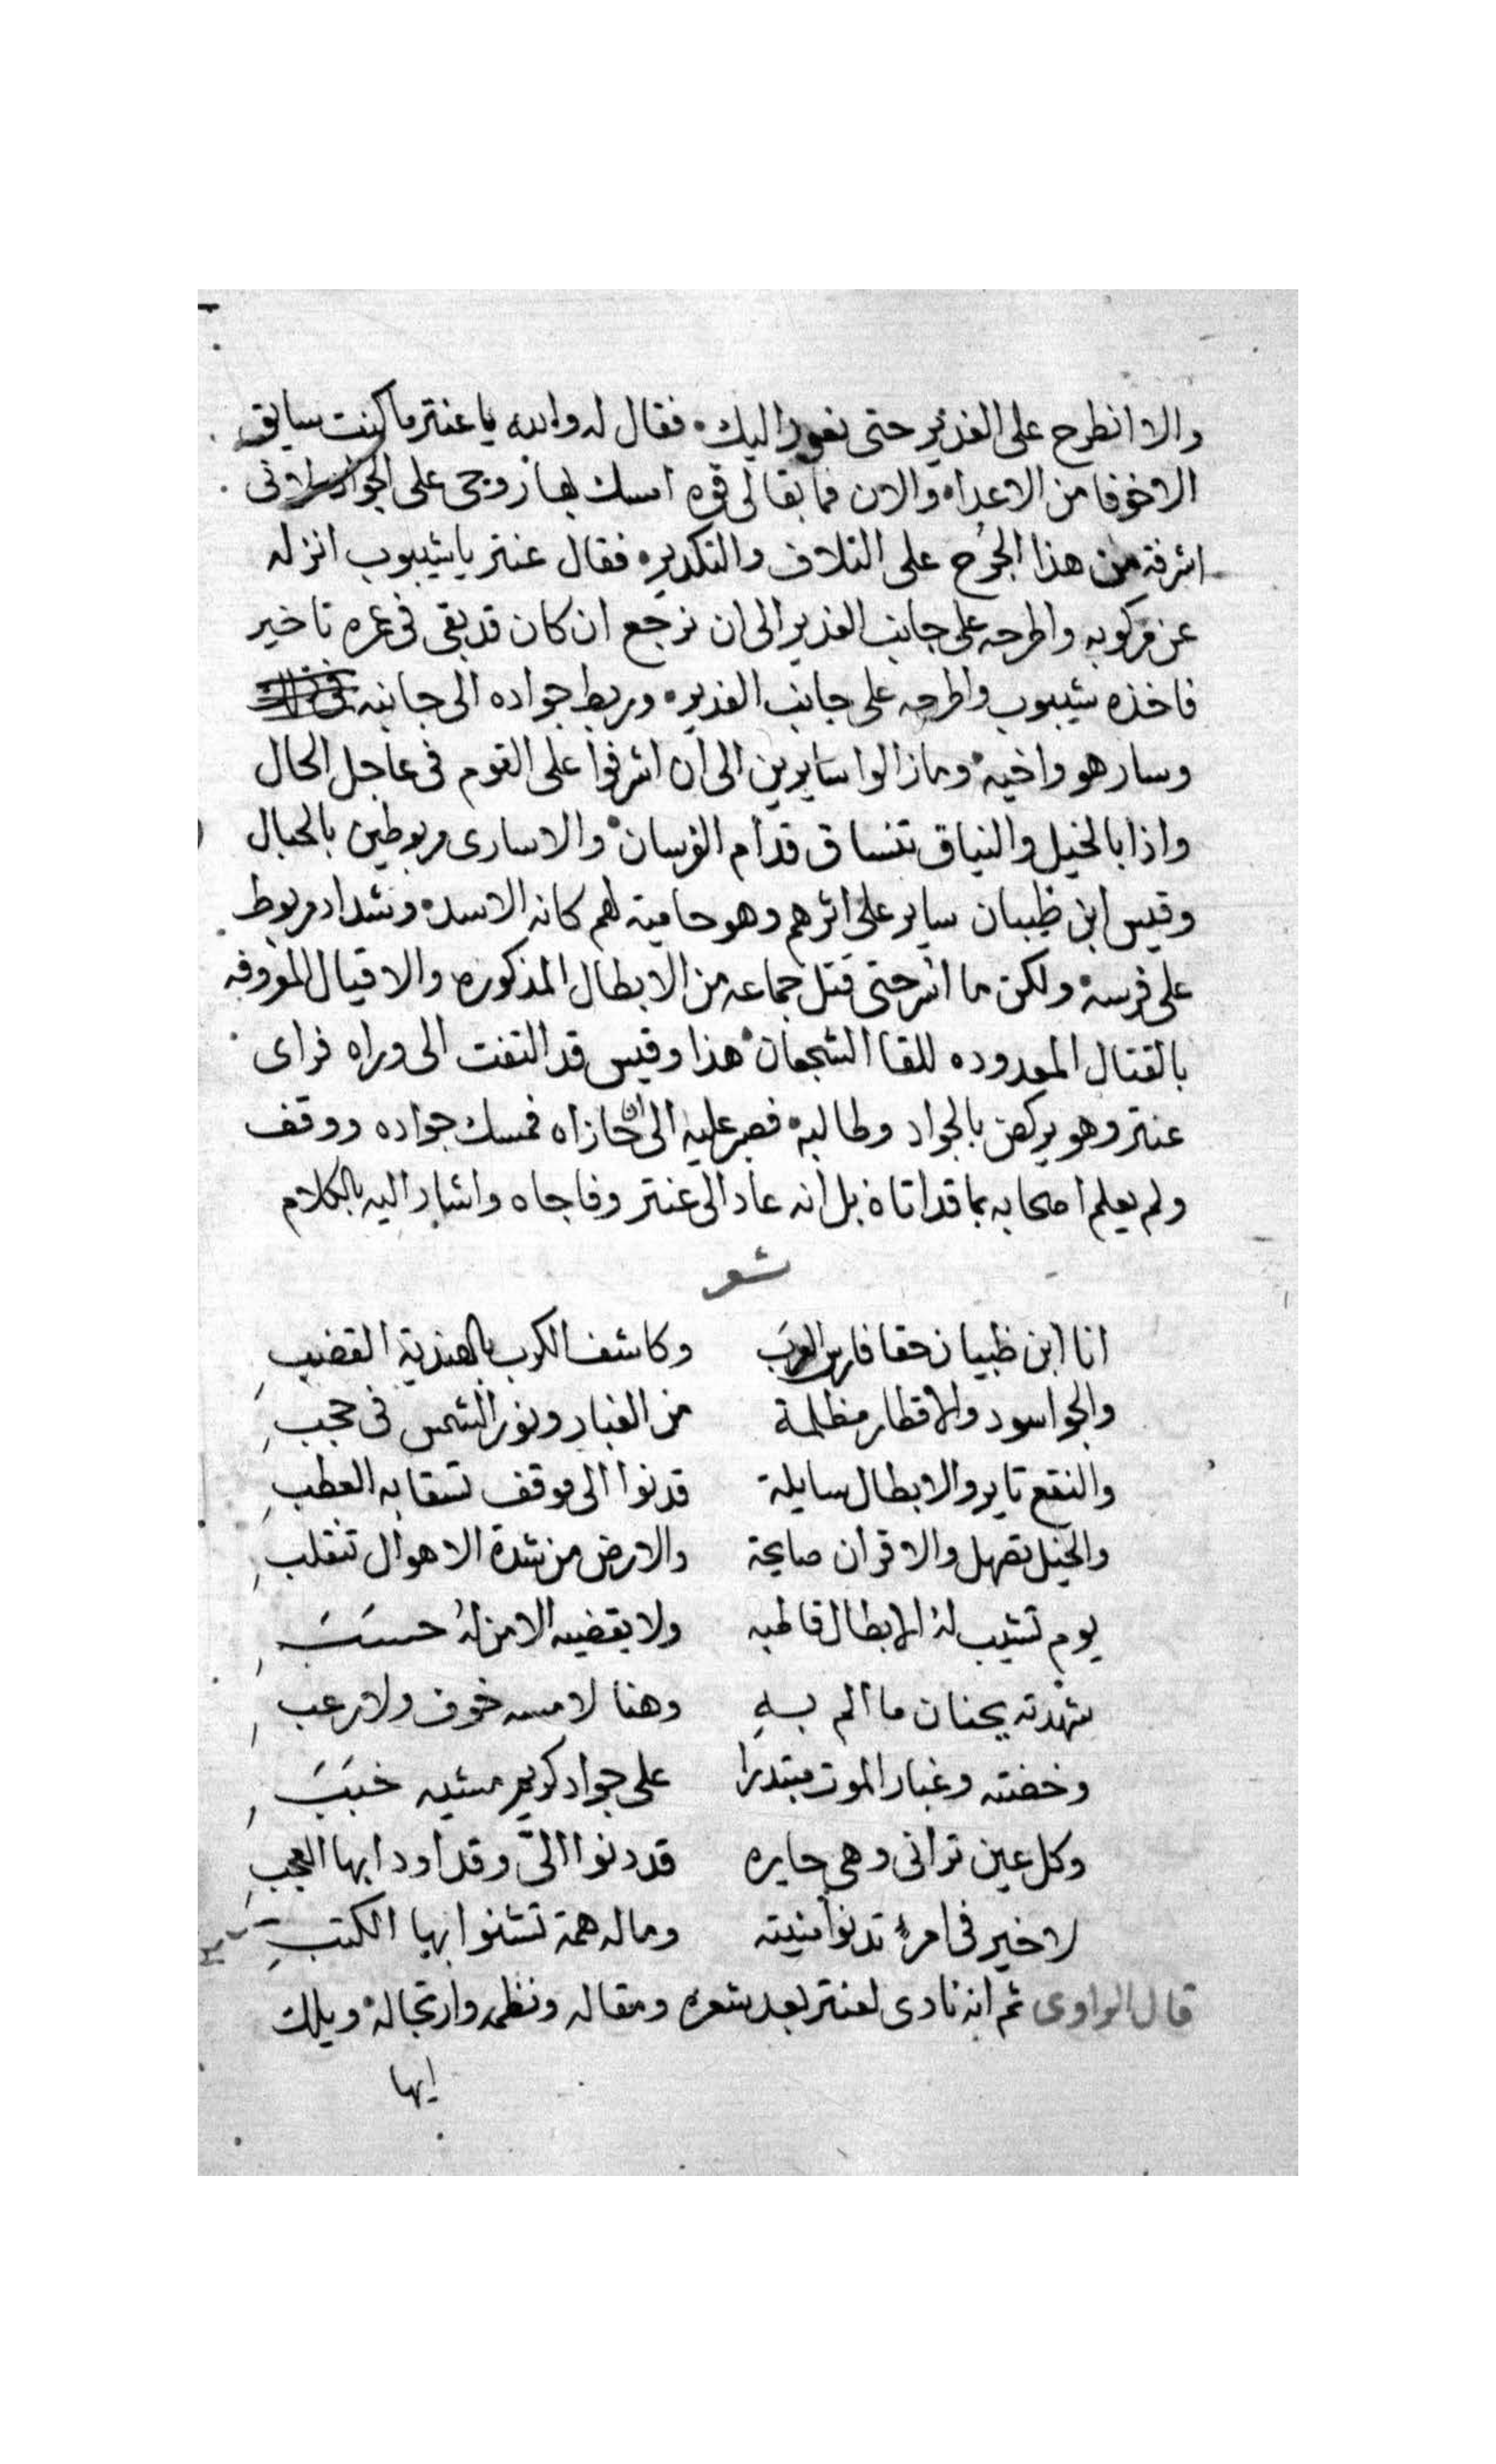 والا انطرح على الغدير حتى نعود اليك فقال له والله يا عنتر ما كنت سايق
الا خوفا من الاعداء والان فما بقا لى قوه امسك بها روحى على الجواد لانى
اشرفة من هذا الجُرح على التلاف والتكدير فقال عنتر يا شيبوب انزله
عن مركوبه واطرحه على جانب الغدير الى ان نرجع ان كان قد بقى فى عمره تاخير
فاخذه شيبوب واطرحه على جانب الغدير وربط جواده الى جانبه
وسار هو واخيه وما زالوا سايرين الى ان اشرفوا على القوم فى عاجل الحال
واذا بالخيل والنياق تنساق قدام الفرسان والاسارى مربوطين بالحبال
وقيس ابن ظبيان ساير على اثرهم وهو حامية لهم كانه الاسد وشداد مربوط
على فرسه ولكن ما اسر حتى قتل جماعه من الابطال المذكوره والاقيال المعروفه
بالقتال المعدوده للقا الشجعان هذا وقيس قد التفت الى وراه فراى
عنتر وهو يركض بالجواد وطالبه فصبر عليه الى ان حازاه فمسك جواده ووقف
ولم يعلم اصحابه بما قد اتاه بل انه عاد الى عنتر وفاجاه واشار اليه بالكلام
شعر
انا ابن ظبيان حقا فارس العرب وكاشف الكرب بالهندية القضب
والجو اسود والاقطار مظلمة من الغبار ونور الشمس فى حجب
والنقع تاير والابطال سايلة قد نوا الى موقف تسقا به العطب
والخيل تصهل والاقران صايحة والارض من شدة الاهوال تنقلب
يوم تشيب لهُ الابطال قاطبه ولا يقضيه الا من لهُ حسَبَ
شهدته بجنان ما الم بهِ وهنا لا مسه خوف ولا رعب
وخضته وغبار الموت مبتدرا على جواد كريم مشيه خبَبَ
وكل عين ترانى وهى حايره قد دنوا الىَّ وقد اودا بها العجبِ
لا خير فى امرءٍ تدنوا منيته وما له همة تشنوا بها الكتبِ
قال الراوى ثم انه نادى لعنتر بعد شعره ومقاله ونظمه وارتجاله ويلك
ايها